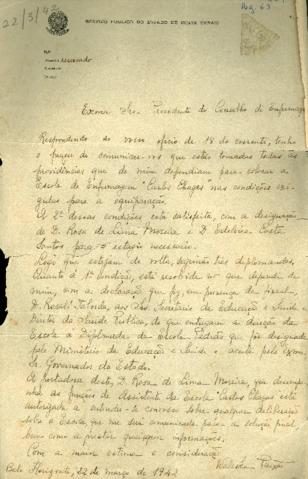 22/3/42
Pag. 63
SERVIÇO PUBLICO DO ESTADO DE MINAS GERAIS
Exmo Sr. Presidente do Conselho de Enfermagem
Respondendo ao seu oficio de 18 do corrente, tenho
o prazer de comunicar-vos que estão tomadas todas as
providências que de mim dependiam para colocar a
Escola de Enfermagem "Carlos Chagas" nas condições exi-
gidas para a equiparação.
A 2ª dessas condições está satisfeita, com a designação
de D. Rosa de Lima Moreira e D. Edelvira Costa
Santos para o estágio necessário.
Logo que estejam de volta, seguirão três diplomandas.
Quanto á 1ª condição, está resolvido no que depende de
mim, com a declaração que fiz, em presença da fiscal,
D. Rosali Taborda, ao Sr. Secretário de Educação e Saúde e
Diretor da Saúde Publica, de que entregarei a direção da
Escola á Diplomada da Escola Padrão que for designada
pelo Ministério da Educação e Saúde e aceita pelo exmo.
Sr. Governador do Estado.
A portadora desta, D. Rosa de Lima Moreira, que desempe-
nha as funções de Assistente da Escola "Carlos Chagas" está
autorizada a entender-se convosco sobre qualquer deliberação
sobre a Escola, que me será comunicada para a solução final,
bem como a prestar quaisquer informações.
Com a maior estima e consideração
Waleska Paixão
Belo Horizonte, 22 de março de 1942